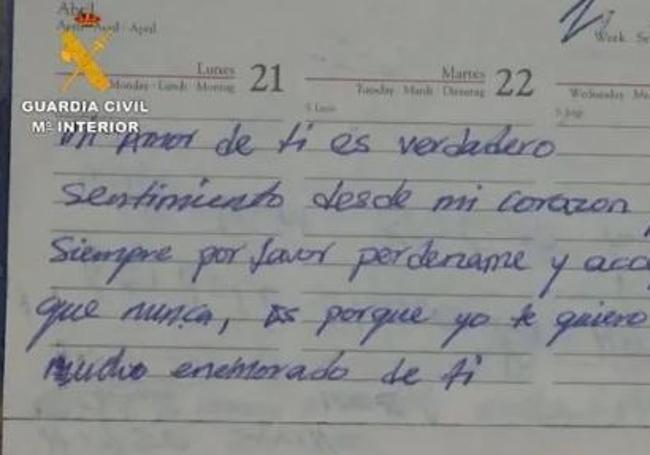 Abril
April
Lunes 21
Monday Lundi Montag
Martes 22
Tuesday Mardi Dienstag
Week
Wednesday
GUARDIA CIVIL
Mº INTERIOR
Mi Amor de ti es verdadero
sentimiento desde mi corazon
Siempre por favor perdename y
que nunca, es porque yo te quiero
mucho enemorado de ti